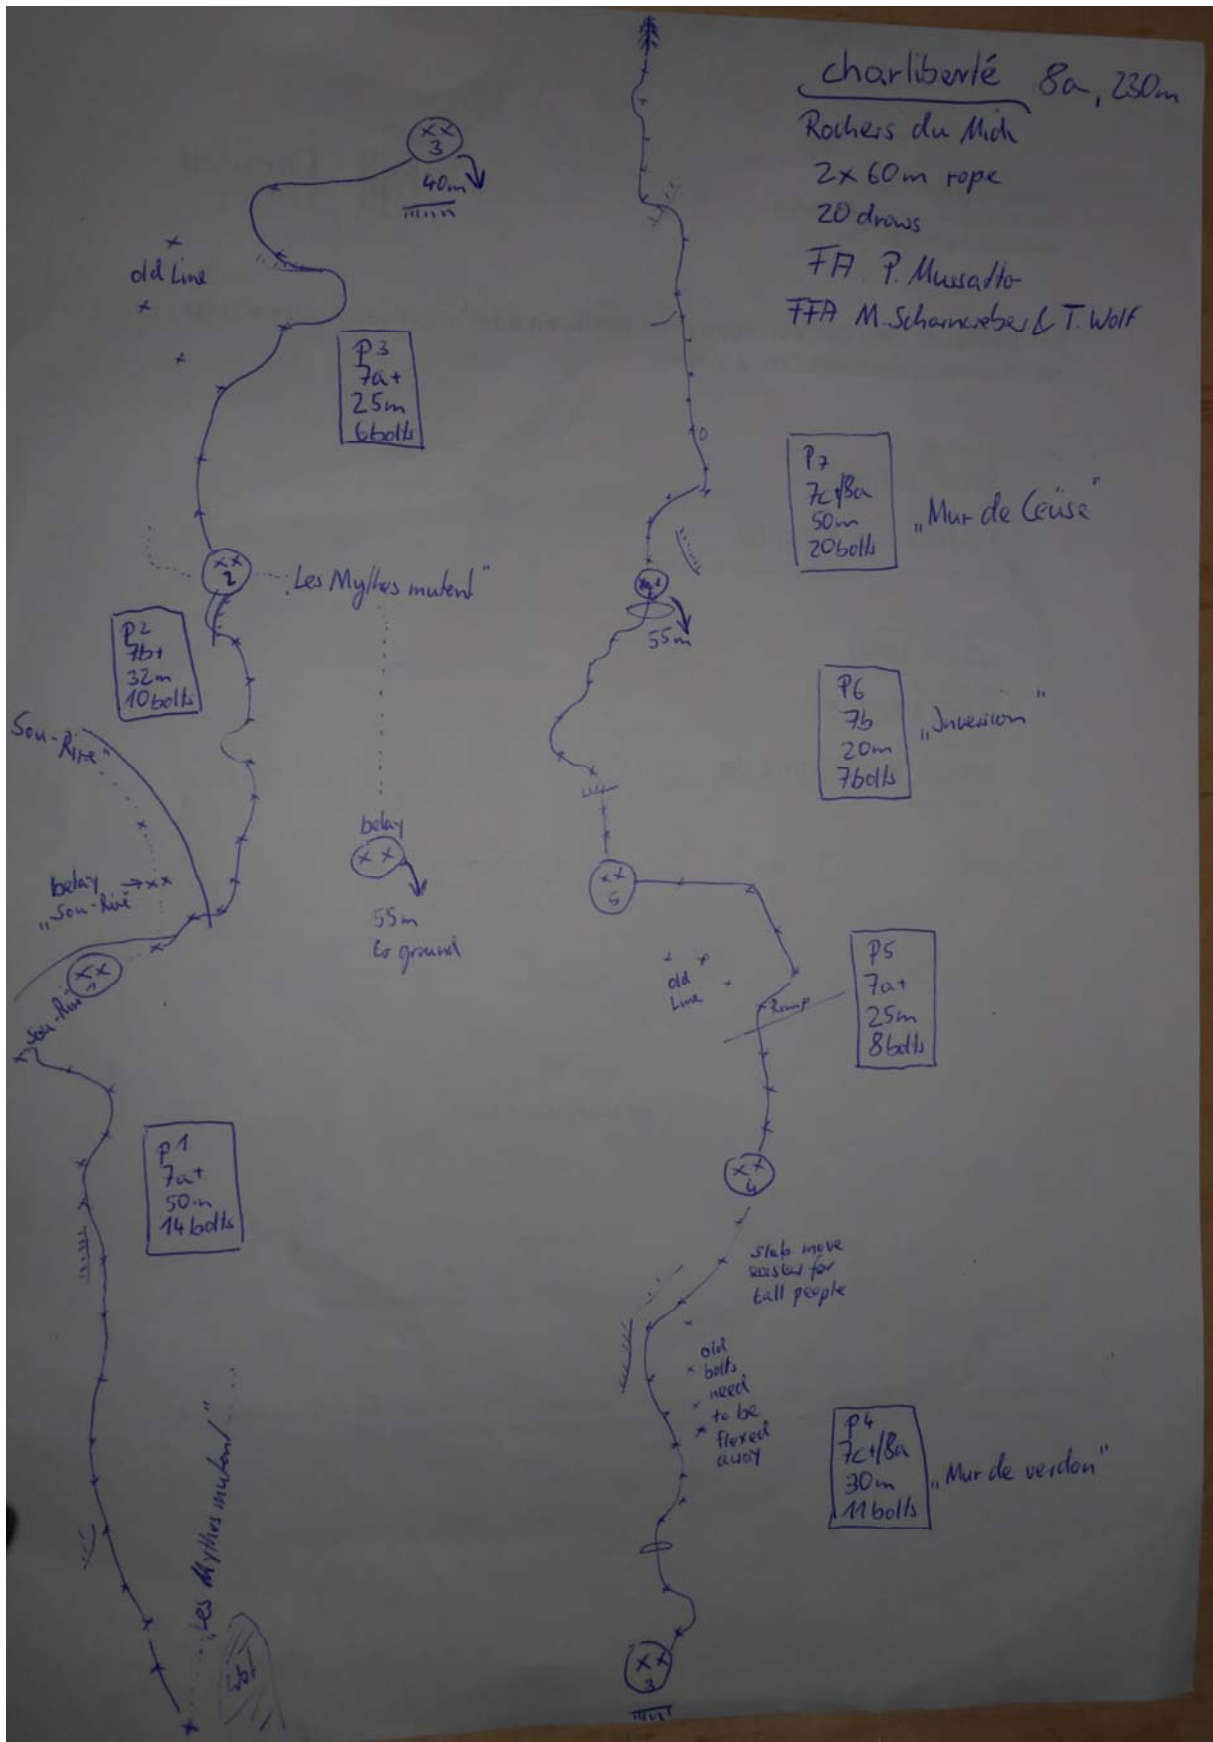 charliberté 8a, 230m
Rochers du Midi
2x 60m rope
20 draws
FA P. Mussatto
FFA M. Scharnweber & T. Wolf
xx
3
40m
old Line
P3
7a+
25m
6bolts
xx
2
"Les Mythes mutent"
P2
7b+
32m
10bolts
Sou-Rire"
belay
"Sou-Rire
belay
xx
55m
to ground
xx
1
"Sou-Rire
P1
7a+
50m
14bolts
"Les Mythes mutent"
P7
7c+/8a
50m
20bolts
"Mur de Ceüse"
55m
P6
7b
20m
7bolts
"Inversion"
xx
5
old
Line
Ramp
P5
7a+
25m
8bolts
xx
4
slab move
easier for
tall people
old
bolts
need
to be
flexed
away
P4
7c+/8a
30m
11bolts
"Mur de verdon"
xx
3